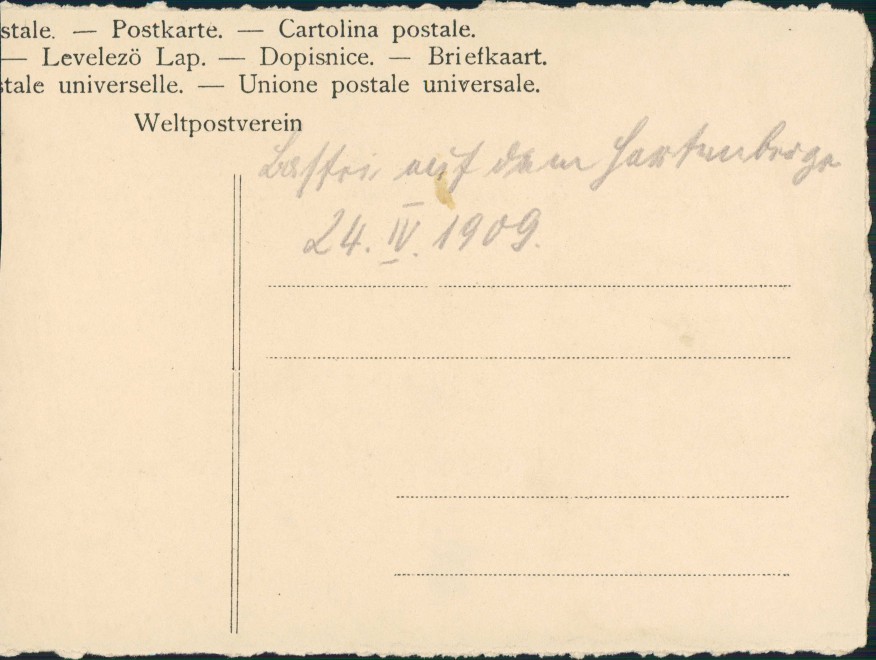 stale. — Postkarte. — Cartolina postale.
— Levelezö Lap. — Dopisnice. — Briefkaart.
stale universelle. — Unione postale universale.
Weltpostverein
Bastei auf dem Hartenberge
24. IV. 1909.